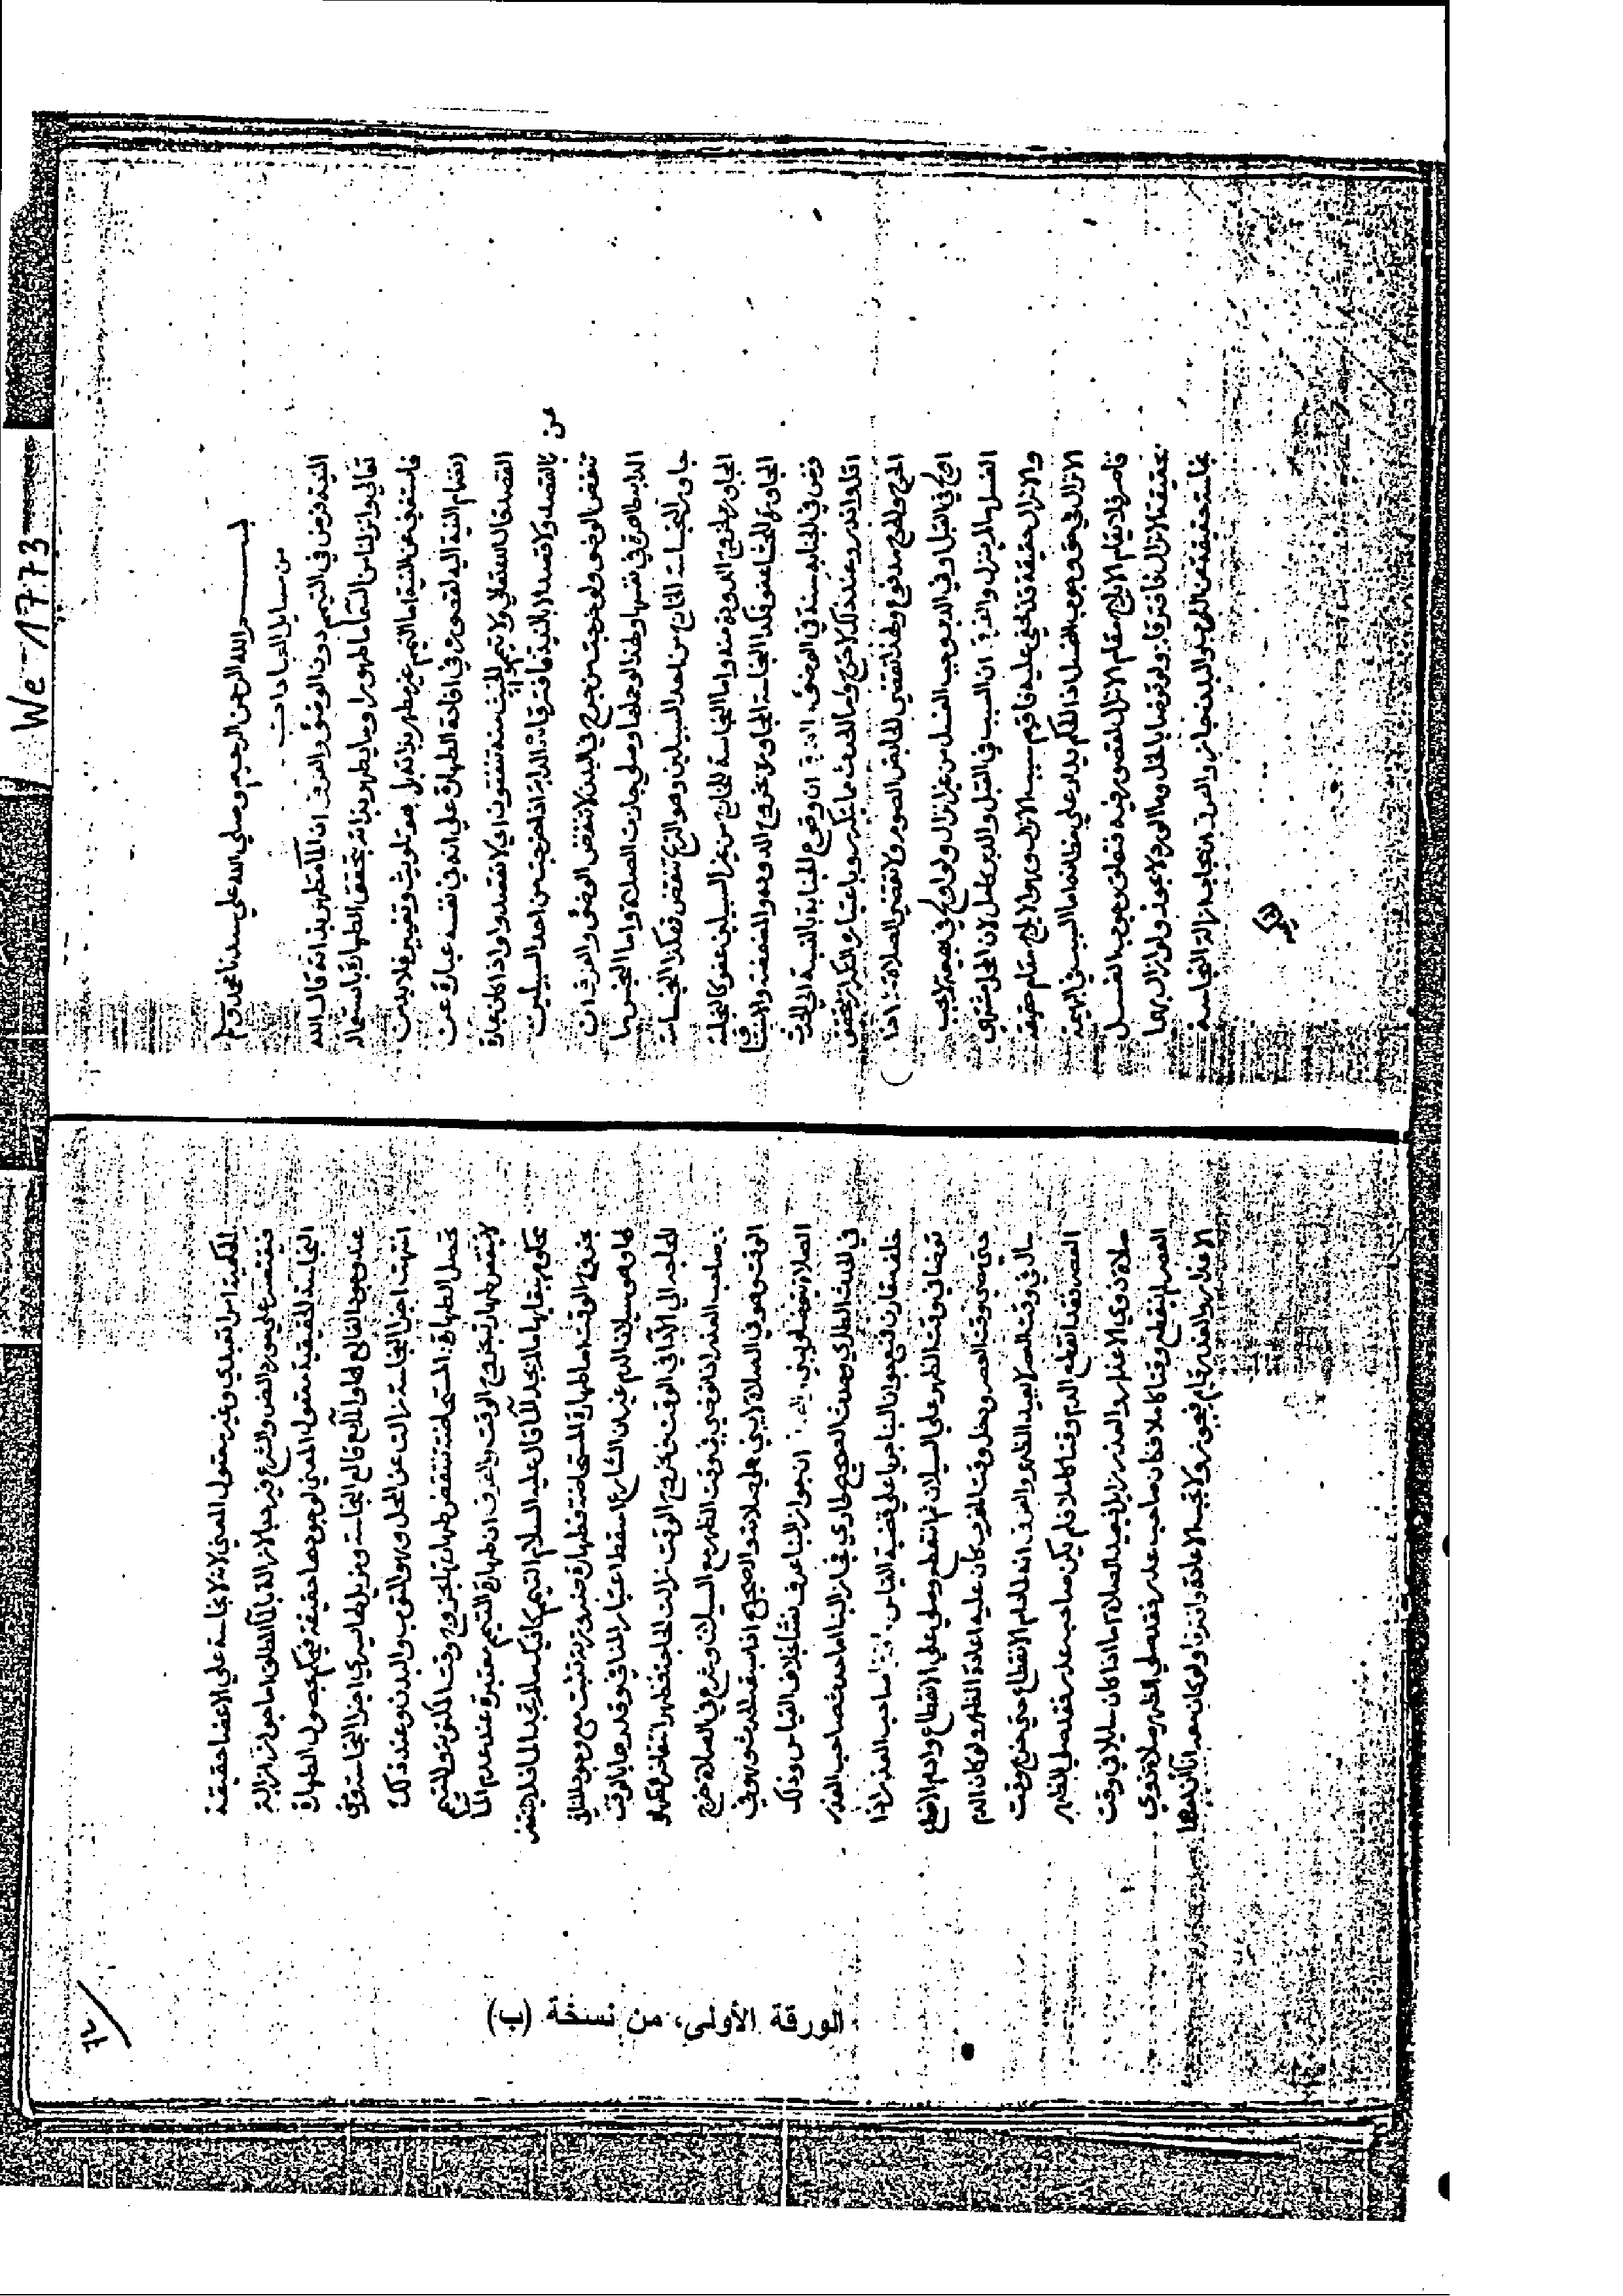 We 1773
بسم الله الرحمن الرحيم وصلى الله على سيدنا محمد وسلم
من مسايل العبادات
النية فرض في التيمم دون الوضوء والفرق ان الماء مطهر بذاته قال الله
تعالى وانزلنا من السماء ماء طهورا وما يطهر بذاته تحقق الطهارة باستعماله
فاستغنى عن النية اما التيمم غير مطهر بذاته بل هو تلويث وتغيير فلا بد من
انضمام النية اليه لقصوره في افادة الطهارة على انه في نفسه عبارة عن
القصد قال الله تعالى ولا تيمموا الخبيث منه تنفقون اي لا تقصدوا واذا كان عبارة
عن
القصد ولا قصد الا بالنية فافترقا الدابة اذا خرجت من احد السبيلين
تنقض الوضوء ولو خرجت من جرح في البدن لا تنقض الوضوء والفرق ان
الدابة طاهرة في نفسها ولهذا لو حملها وصلى جازت الصلاة واما النجس ما
جاورها والنجاسة الخارج من احد السبيلين وهو الريح تنقض فكذا النجاسة
المجاورة لخروج الدودة منه واما النجاسة الخارج من غير السبيلين عفو
المجاورة للجشا عفو فكذا النجاسة المجاورة لخروج الدودة والمضمضة والاستنشاق
فرض في الجنابة سنة في الوضوء الفرق ان وقوع الجنابة بالنسبة الى الحدث
اقل واندر وعند ذلك لا حرج واما الحدث مما يتكرر وباعتبار التكرار يتحقق
الحرج والحرج مدفوع ولهذا تقضي الحايض الصوم ولا تقضي الصلاة اذا
اولج في القبل او في الدبر يجب الغسل من غير انزال ولو اولج في بهيمة لا يجب
الغسل ما لم ينزل والفرق ان السبب في القبل والدبر كامل لان المحل مشتهى
والانزال حقيقة قد تخفى عليه فاقيم سبب الانزال وهو الايلاج مقام حقيقة
الانزال في حق وجوب الغسل اذ الحكم يدار على مظانه اما السبب في البهيمة
قاصر فلا يقام الايلاج مقام الانزال لقصور فيه فتعلق وجوب الغسل
بحقيقة الانزال فافترقا ولو توضا بالخل وماء الورد لا يجوز ولو ازال بهما
نجاسة حقيقية عن الثوب والبدن جاز والفرق
الحكمية امر تعبدي وغير معقول المعنى لانه لا نجاسة على الاعضا حقيقة
فيقتصر على مورد النص والشرع فيرد بالازالة بالماء المطلق اما جواز ازالة
النجاسة الحقيقية معقول المعنى لوجودها حقيقة فيحكم بحصول الطهارة
عند وجود القالع
انتهت اجزا النجاسة زالت عن المحل وهو الثوب والبدن وعند ذلك
تحصل الطهارة المستحاضة تنتقض طهارتها بخروج وقت المكتوبة والمتيمم
لا تنتقض طهارته بخروج الوقت والفرق ان طهارة التيمم معتبرة عند عدم الماء
يحكم ببقايها ما لم يجد الماء قال عليه السلام التيمم كافيك ما لم تجد الماء فلا ينتقض
بخروج الوقت اما طهارة المستحاضة فطهارة ضرورية تثبت مع وجود المنافي
لها وهو سيلان الدم غير ان الشارع اسقط اعتبار المنافي وقدرها بالوقت
للحاجة الى الادا في الوقت فبخروج الوقت زالت الحاجة فظهر
صاحب العذر اذا توضى في وقت الظهر مع السيلان وشرع في الصلاة خرج
الوقت وهو في الصلاة لا يبني على صلاته والصحيح اذا سبقه الحدث وهو في
الصلاة يتوضى ويبني ان جواز البناء عرف نصا بخلاف القياس وذلك
في الحدث الطاري وحدث الصحيح طاري فجاز البناء اما حدث صاحب العذر
خلفه مقارن فتعود ان البناء جريا على قضية القياس صاحب العذر اذا
توضا في وقت الظهر على السيلان ثم انقطع وصلى على الانقطاع ودام الانقطاع
حتى مضى وقت العصر ودخل وقت المغرب كان عليه اعادة الظهر ولو كان الدم
سال في وقت العصر لا يعيد الظهر والفرق انه لما دام الانقطاع حتى خرج وقت
العصر فقد انقطع الدم وقتا كاملا فلم يكن صاحب عذر فقد صلى الظهر
صلاة ذوي الاعذار والعذر زايل فيعيد الصلاة اما اذا كان سايلا في وقت
العصر لم ينقطع وقتا كاملا فكان صاحب عذر فقد صلى الظهر صلاة ذوي
الاعذار والعذر قايم فيجوز ولا يجب الاعادة
الورقة الأولى، من نسخة (ب)